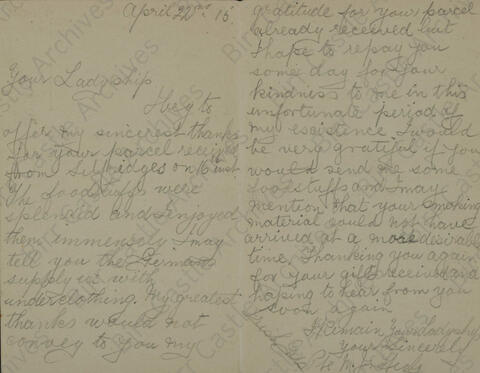 April 22nd 16
Your Ladyship
I beg to
offer my sincerest thanks
for your parcel received
from Selfridges on 16th inst.
The foodstuffs were
splendid and I enjoyed
them immensely. I may
tell you the Germans
supply us with
underclothing. My greatest
thanks would not
convey to you my
gratitude for your parcel
already received but
I hope to repay you
some day for your
kindness to me in this
unfortunate period of
my existence. I would
be very grateful if you
would send me some
foodstuffs and I may
mention that your smoking
material could not have
arrived at a more desirable
time. Thanking you again
for your gifts received and
hoping to hear from you
soon again
I Remain Your Ladyship
Yours Sincerely
Pte
Birr Castle Archives